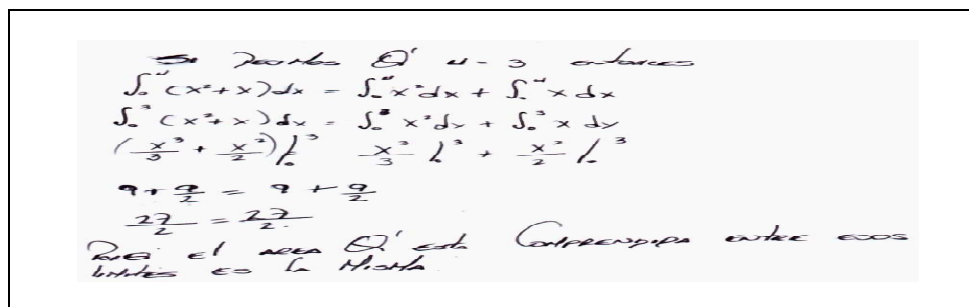 Se Decimos Q' u = 3 entonces
∫₀ᵘ (x²+x)dx = ∫₀ᵘ x²dx + ∫₀ᵘ x dx
∫₀³ (x²+x)dx = ∫₀³ x²dx + ∫₀³ x dx
(x³/3 + x²/2)/₀³ x³/3 /₀³ + x²/2 /₀³
9 + 9/2 = 9 + 9/2
27/2 = 27/2.
el area Q' está Comprendida entre esos
limites es la Misma